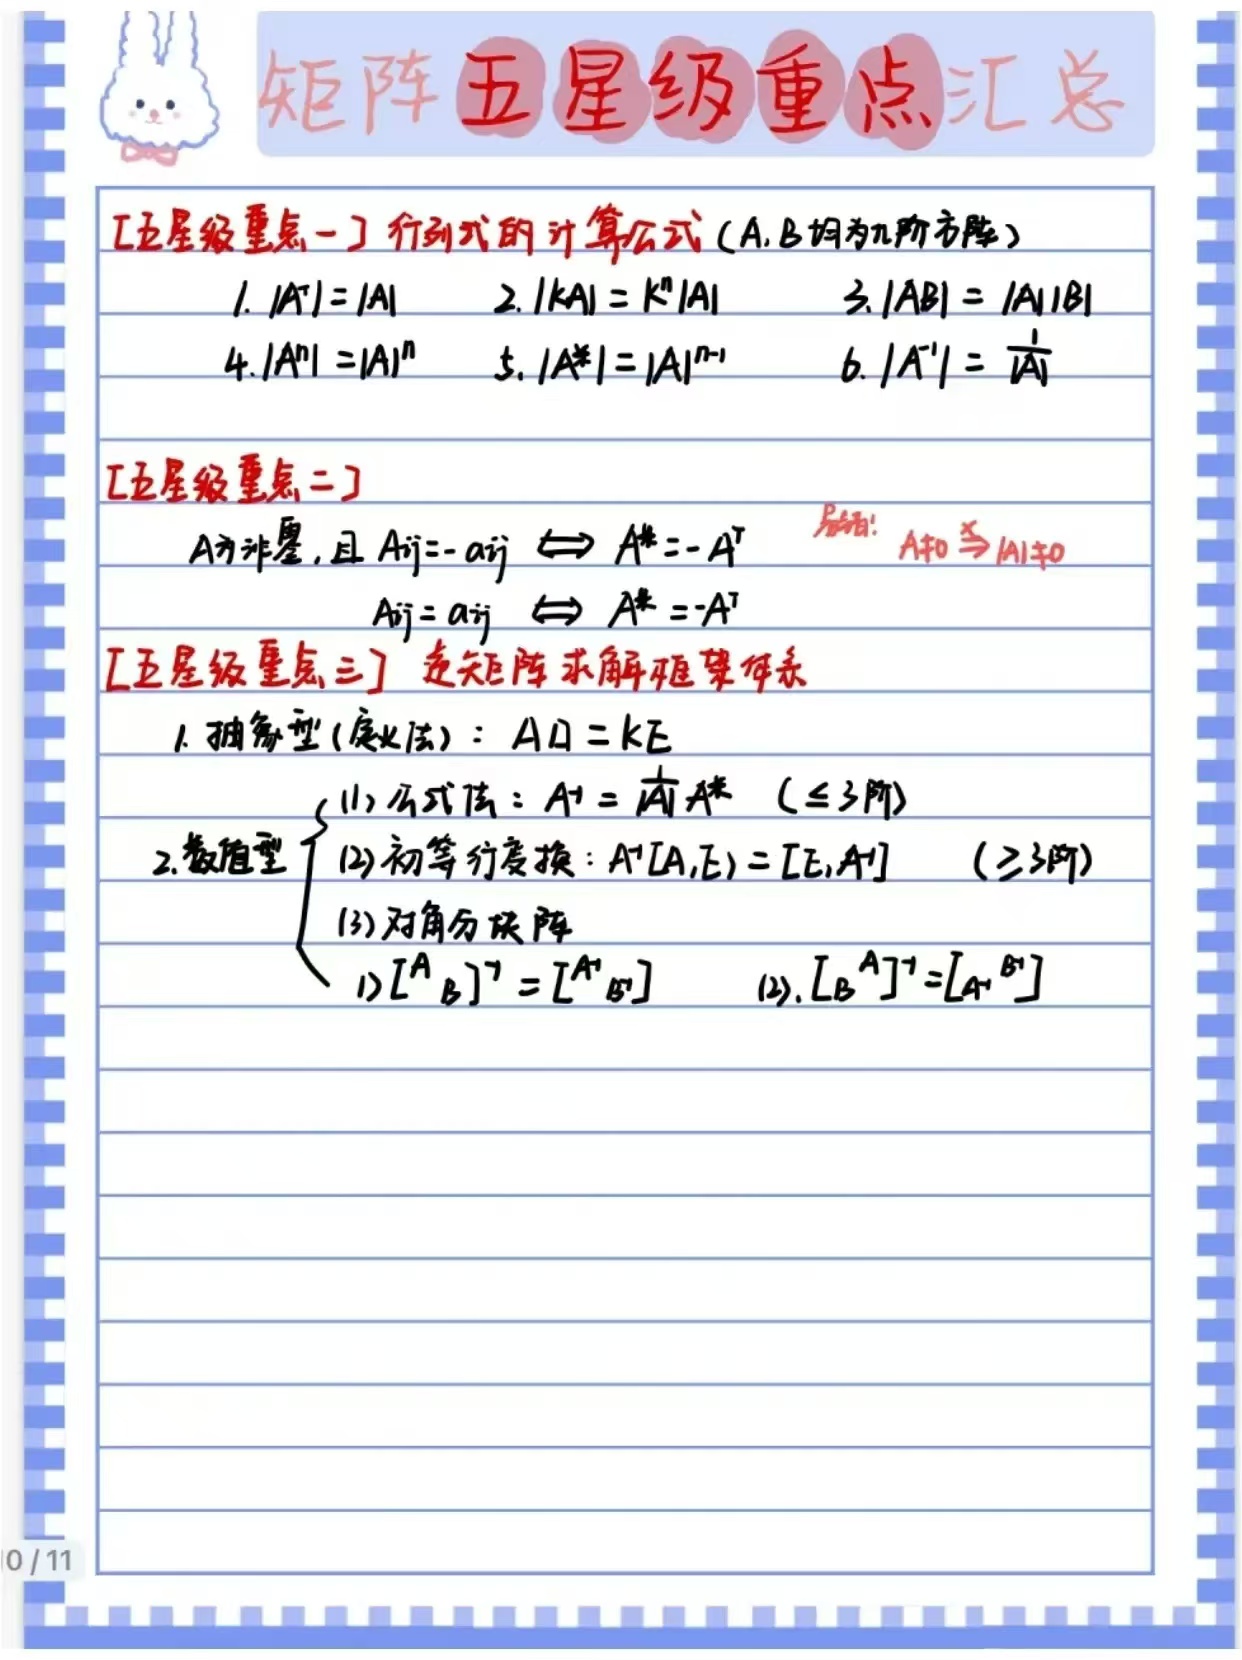 矩阵五星级重点汇总
[五星级重点一] 行列式的计算公式 (A, B均为n阶方阵)
1. |Aᵀ| = |A| 2. |kA| = kⁿ|A| 3. |AB| = |A||B|
4. |Aⁿ| = |A|ⁿ 5. |A*| = |A|ⁿ⁻¹ 6. |A⁻¹| = 1/|A|
[五星级重点二]
A为非零, 且 Aij = -aij ⟺ A* = -Aᵀ
A≠0 ⇏ |A|≠0
Aij = aij ⟺ A* = -Aᵀ
[五星级重点三] 逆矩阵求解框架体系
1. 抽象型 (定义法) : A□ = kE
2. 数值型
(1) 公式法 : A⁻¹ = 1/|A| A* (≤3阶)
(2) 初等行变换 : A⁻¹[A,E) = [E,A⁻¹] (≥3阶)
(3) 对角分块阵
1) [A B]⁻¹ = [A⁻¹ B⁻¹] (2). [B A]⁻¹ = [A⁻¹ B⁻¹]
10 / 11